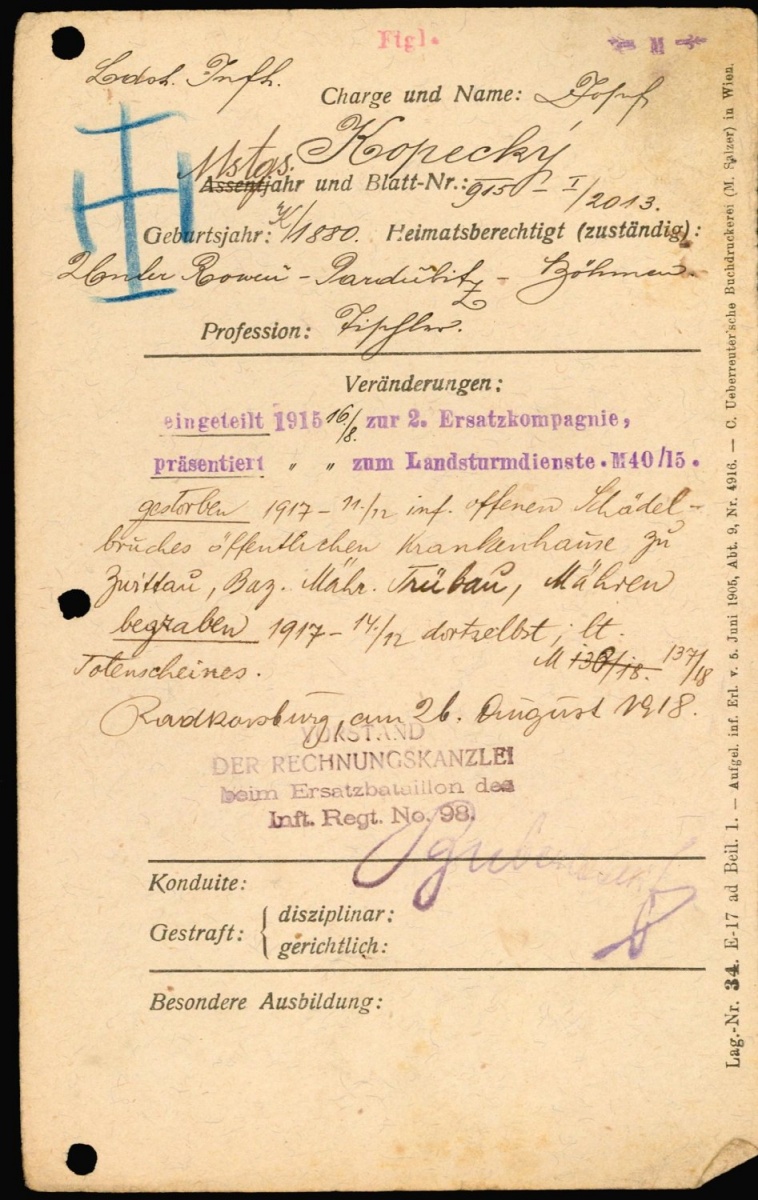 Figl.
M
Ldst. Infst.
Charge und Name: Josef
Kopecký
Mstgs.
Assentjahr und Blatt-Nr.: 915 - I/2013.
Geburtsjahr: K/1880. Heimatsberechtigt (zuständig):
Unter Roweň - Pardubitz - Böhmen.
Profession: Tischler.
Veränderungen:
eingeteilt 1915 16/8. zur 2. Ersatzkompagnie,
präsentiert " " zum Landsturmdienste. M40/15.
gestorben 1917 - 11./12 inf. offenen Schädel-
bruches öffentlichen Krankenhause zu
Zwittau, Baz. Mähr. Trübau, Mähren
begraben 1917 - 14./12 dortselbst, lt.
Totenscheines. M 136/18. 137/18
Radkersburg, am 26. August 1918.
VORSTAND
DER RECHNUNGSKANZLEI
beim Ersatzbataillon des
Inft. Regt. No. 98.
Konduite:
Gestraft: { disziplinar:
gerichtlich:
Besondere Ausbildung:
Lag.-Nr. 34. E-17 ad Beil. 1. — Aufgel. inf. Erl. v. 5. Juni 1905, Abt. 9, Nr. 4916. — C. Ueberreuter'sche Buchdruckerei (M. Salzer) in Wien.